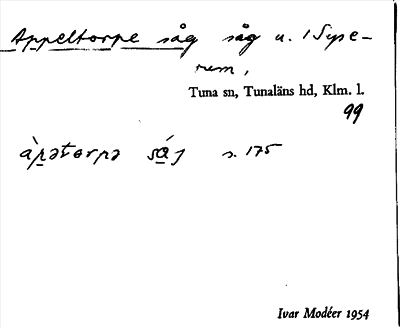 Appeltorpe såg såg u. / Sype-
rum,
Tuna sn, Tunaläns hd, Klm. l.
99
àpətorpə sá̱j s. 175
Ivar Modéer 1954